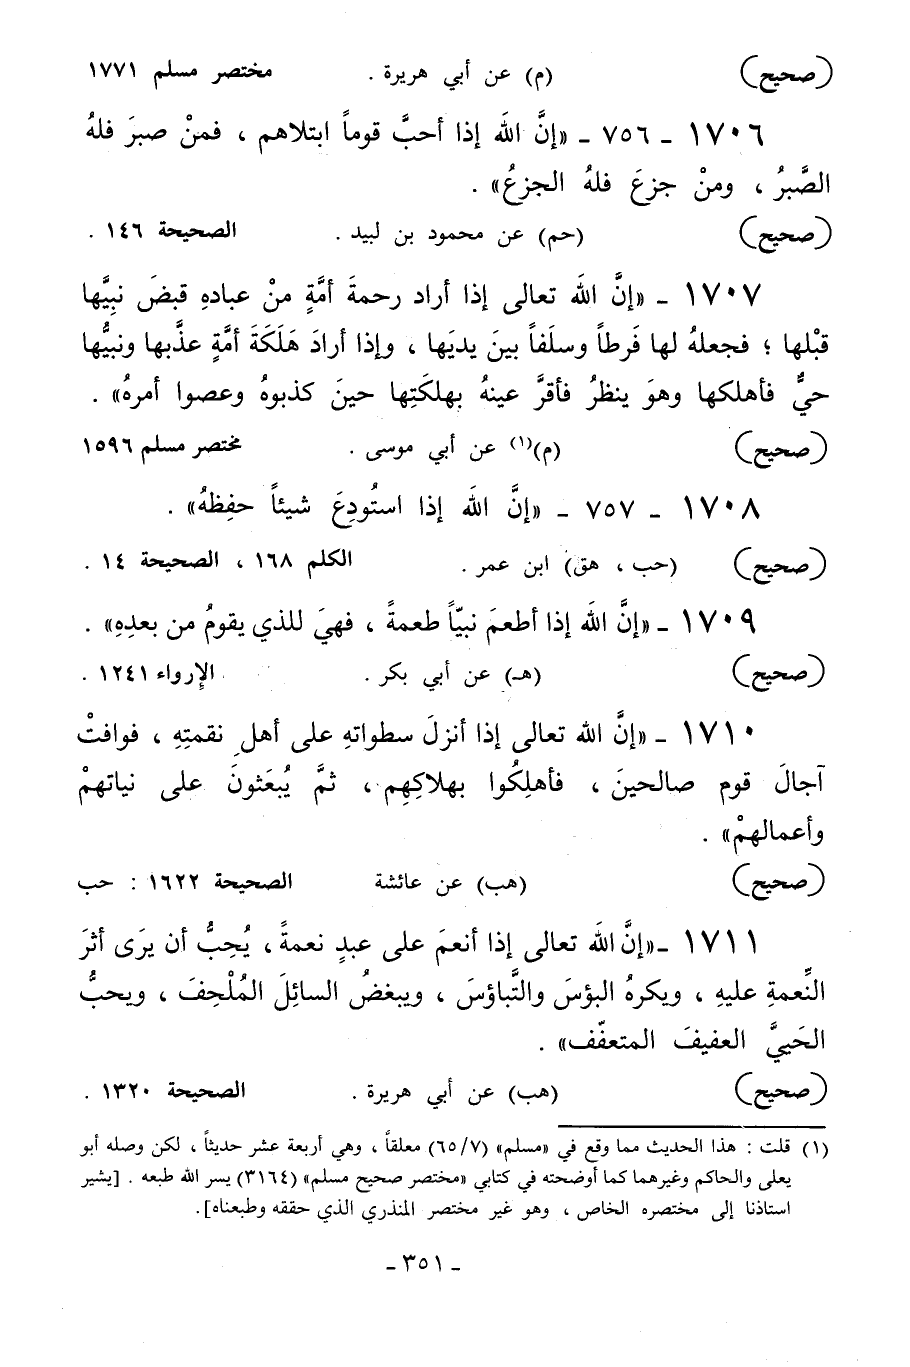 (صحيح) (م) عن أبي هريرة . مختصر مسلم ١٧٧١
١٧٠٦ ـ ٧٥٦ ـ «إنَّ اللهَ إذا أحبَّ قوماً ابتلاهم ، فمنْ صبرَ فلهُ
الصَّبرُ ، ومنْ جزعَ فلهُ الجزعُ» .
(صحيح) (حم) عن محمود بن لبيد . الصحيحة ١٤٦ .
١٧٠٧ ـ «إنَّ اللهَ تعالى إذا أراد رحمةَ أمَّةٍ منْ عبادهِ قبضَ نبِيَّها
قبْلها ؛ فجعلهُ لها فَرطاً وسلَفاً بينَ يديَها ، وإذا أرادَ هَلَكَةَ أمَّةٍ عذَّبها ونبيُّها
حيٌّ فأهلكها وهوَ ينظرُ فأقرَّ عينهُ بهلكَتِها حينَ كذبوهُ وعصوا أمرهُ» .
(صحيح) (م)(١) عن أبي موسى . مختصر مسلم ١٥٩٦
١٧٠٨ ـ ٧٥٧ ـ «إنَّ اللهَ إذا استُودِعَ شيئاً حفِظهُ» .
(صحيح) (حب ، هق) ابن عمر . الكلم ١٦٨ ، الصحيحة ١٤ .
١٧٠٩ ـ «إنَّ اللهَ إذا أطعمَ نبيّاً طعمةً ، فهيَ للذي يقومُ من بعدِهِ» .
(صحيح) (هـ) عن أبي بكر . الإرواء ١٢٤١ .
١٧١٠ ـ «إنَّ الله تعالى إذا أنزلَ سطواتهِ على أهلِ نقمتِهِ ، فوافتْ
آجالَ قوم صالحينَ ، فأهلِكُوا بهلاكِهِم ، ثمَّ يُبعَثونَ على نياتهمْ
وأعمالهمْ» .
(صحيح) (هب) عن عائشة الصحيحة ١٦٢٢ : حب
١٧١١ ـ «إنَّ اللهَ تعالى إذا أنعمَ على عبدٍ نعمةً ، يُحِبُّ أن يرَى أثرَ
النِّعمةِ عليهِ ، ويكرهُ البؤسَ والتَّباؤسَ ، ويبغضُ السائِلَ المُلْحِفَ ، ويحبُّ
الحَييَّ العفيفَ المتعفّف» .
(صحيح) (هب) عن أبي هريرة . الصحيحة ١٣٢٠ .
(١) قلت : هذا الحديث مما وقع في «مسلم» (٦٥/٧) معلقاً ، وهي أربعة عشر حديثاً ، لكن وصله أبو
يعلى والحاكم وغيرهما كما أوضحته في كتابي «مختصر صحيح مسلم» (٣١٦٤) يسر الله طبعه . [يشير
استاذنا إلى مختصره الخاص ، وهو غير مختصر المنذري الذي حققه وطبعناه].
ـ ٣٥١ ـ